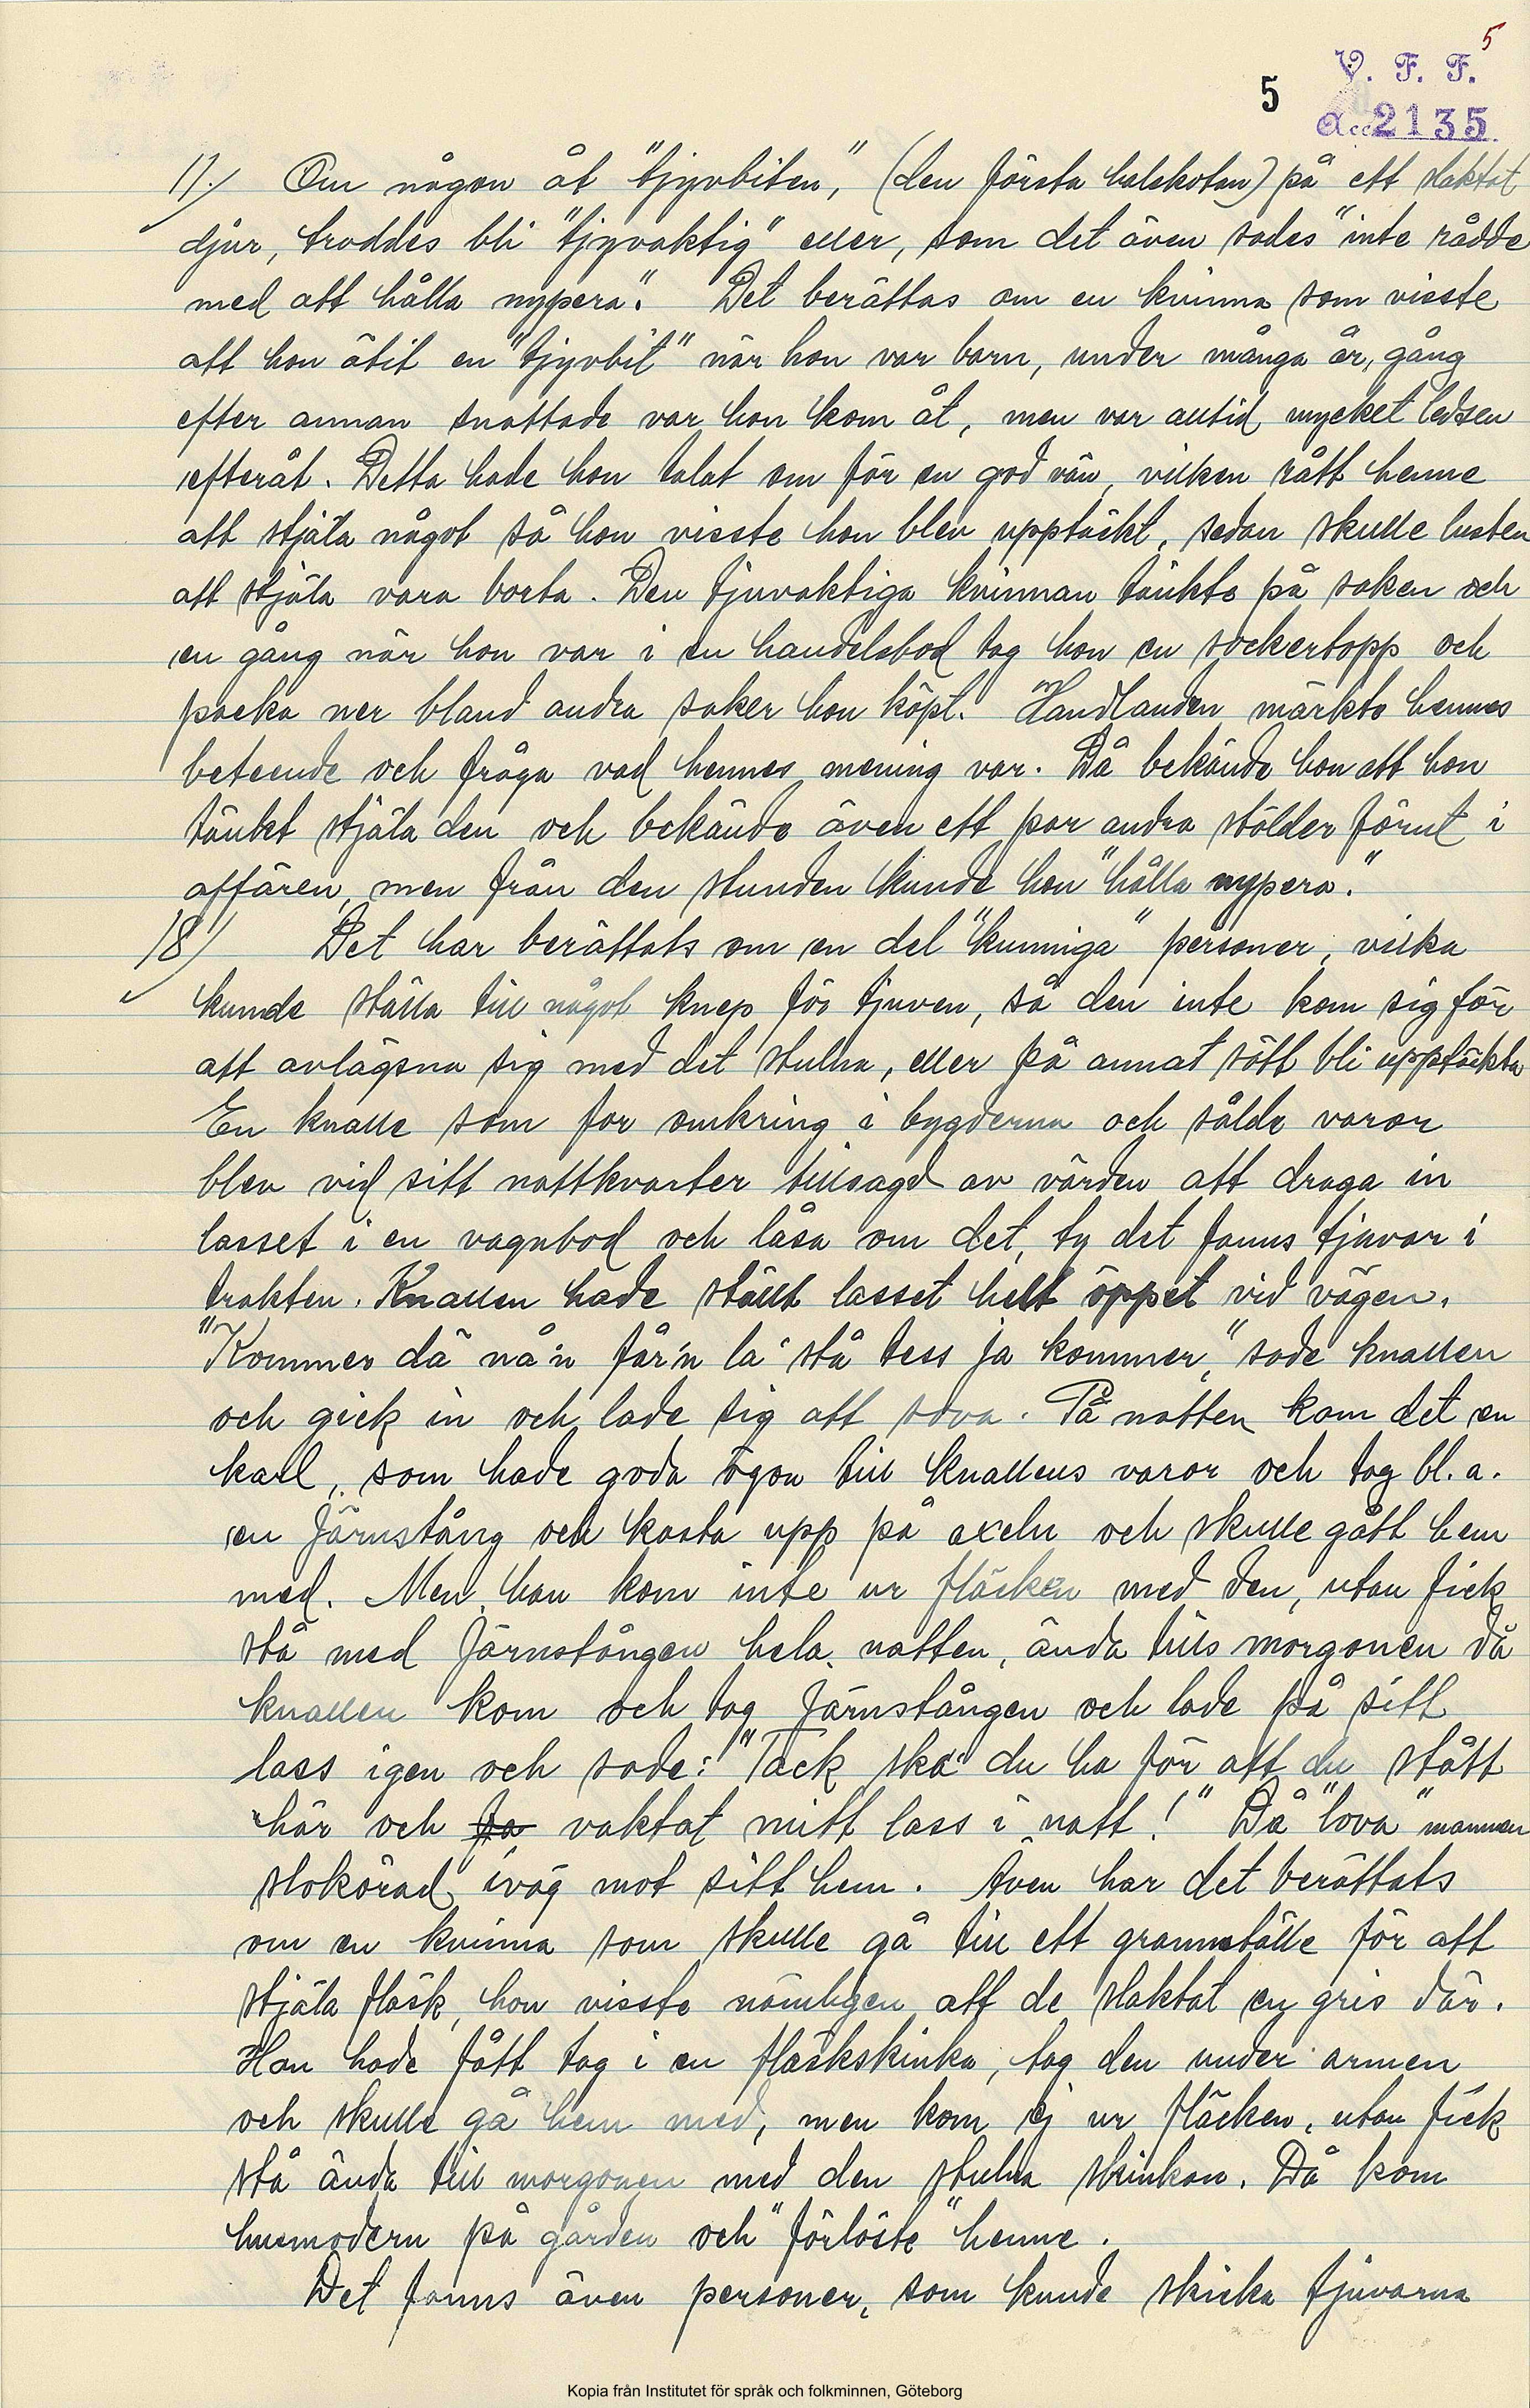 5
5
V. F. F.
Acc 2135
17./ Om någon åt "tjyvbiten", (den första halskotan) på ett slaktat
djur, troddes bli "tjyvaktig" eller, som det även sades "inte rådde
med att hålla nypera". Det berättas om en kvinna som visste
att hon ätit en "tjyvbit" när hon var barn, under många år, gång
efter annan snattade var hon kom åt, men var alltid mycket ledsen
efteråt. Detta hade hon talat om för en god vän, vilken rått henne
att stjäla något så hon visste hon blev upptäckt, sedan skulle lusten
att stjäla vara borta. Den tjuvaktiga kvinnan tänkte på saken och
en gång när hon var i en handelsbod tog hon en sockertopp och
packa ner bland andra saker hon köpt. Handlanden märkte hennes
beteende och fråga vad hennes mening var. Då bekände hon att hon
tänkt stjäla den och bekände även ett par andra stölder förut i
affären, men från den stunden kunde hon "hålla nypera."
18/ Det har berättats om en del "kunniga" personer, vilka
kunde ställa till något knep för tjuven, så den inte kom sig för
att avlägsna sig med det stulna, eller på annat sätt bli upptäckta
En knalle som for omkring i bygderna och sålde varor
blev vid sitt nattkvarter tillsagd av värden att draga in
lasset i en vagnbod och låsa om det, ty det fanns tjuvar i
trakten. Knallen hade ställt lasset helt öppet vid vägen.
"Kommer då nå'n får'n la' stå tess ja kommer," sade knallen
och gick in och lade sig att sova. På natten kom det en
karl, som hade goda ögon till knallens varor och tog bl. a.
en järnstång och kasta upp på axeln och skulle gått hem
med. Men han kom inte ur fläcken med den, utan fick
stå med järnstången hela natten, ända tills morgonen då
knallen kom och tog järnstången och lade på sitt
lass igen och sade: "Tack ska' du ha för att du stått
här och ja vaktat mitt lass i natt!" Då "lova" mannen
slokörad iväg mot sitt hem. Även har det berättats
om en kvinna som skulle gå till ett grannställe för att
stjäla fläsk, hon visste nämligen att de slaktat en gris där.
Hon hade fått tag i en fläskskinka, tog den under armen
och skulle gå hem med, men kom ej ur fläcken, utan fick
stå ända till morgonen med den stulna skinkan. Då kom
husmodern på gården och "förlöste" henne.
Det fanns även personer, som kunde skicka tjuvarna
Kopia från Institutet för språk och folkminnen, Göteborg